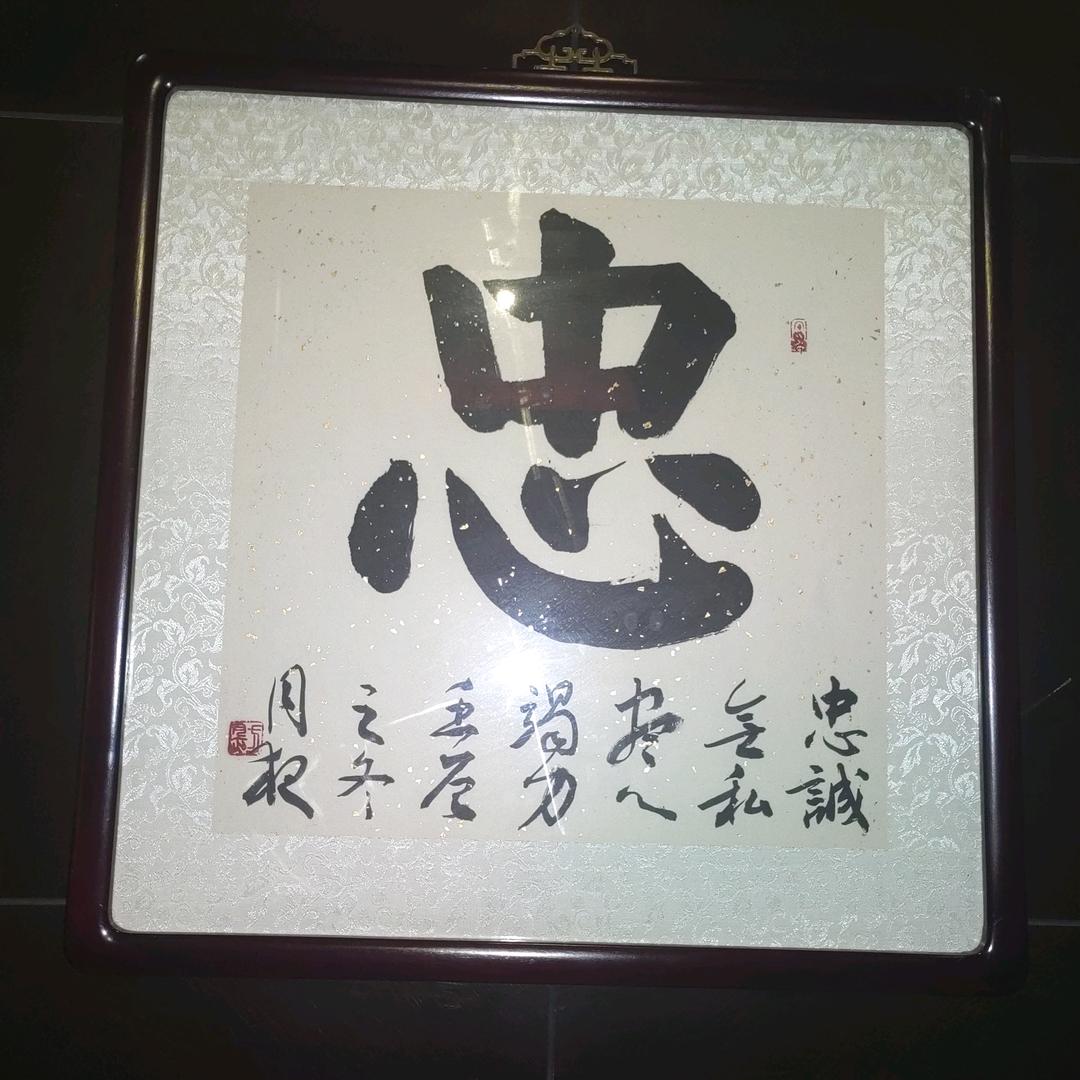 忠
忠誠
無私
盡心
竭力
之冬
月